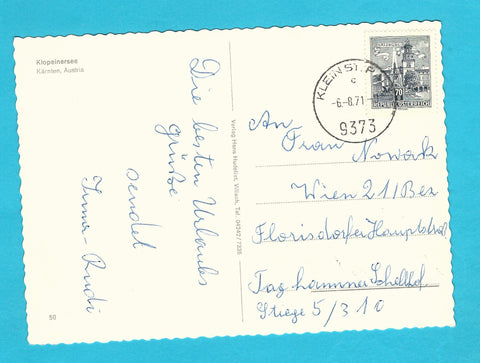 Klopeinersee
Kärnten, Austria
Die besten Urlaubs
grüße
sendet
Irma-Rudi
50
Verlag Hans Hudelist, Villach, Tel. 04242/7335
KLEIN ST. P
c
-6.-8.71
9373
70
REPUBLIK ÖSTERREICH
An
Frau Nowak
Wien 21/Bez
Florisdorfer Hauptstraß
Stiege 5/310